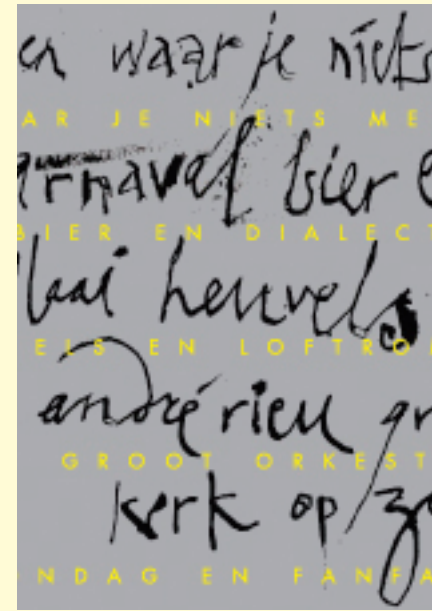 en waar je niets
AR JE NIETS ME
arnaval bier e
BIER EN DIALECT
vlaai heuvels
ELS EN LOFTROM
andré rieu gr
GROOT ORKEST
kerk op zo
ONDAG EN FANFA